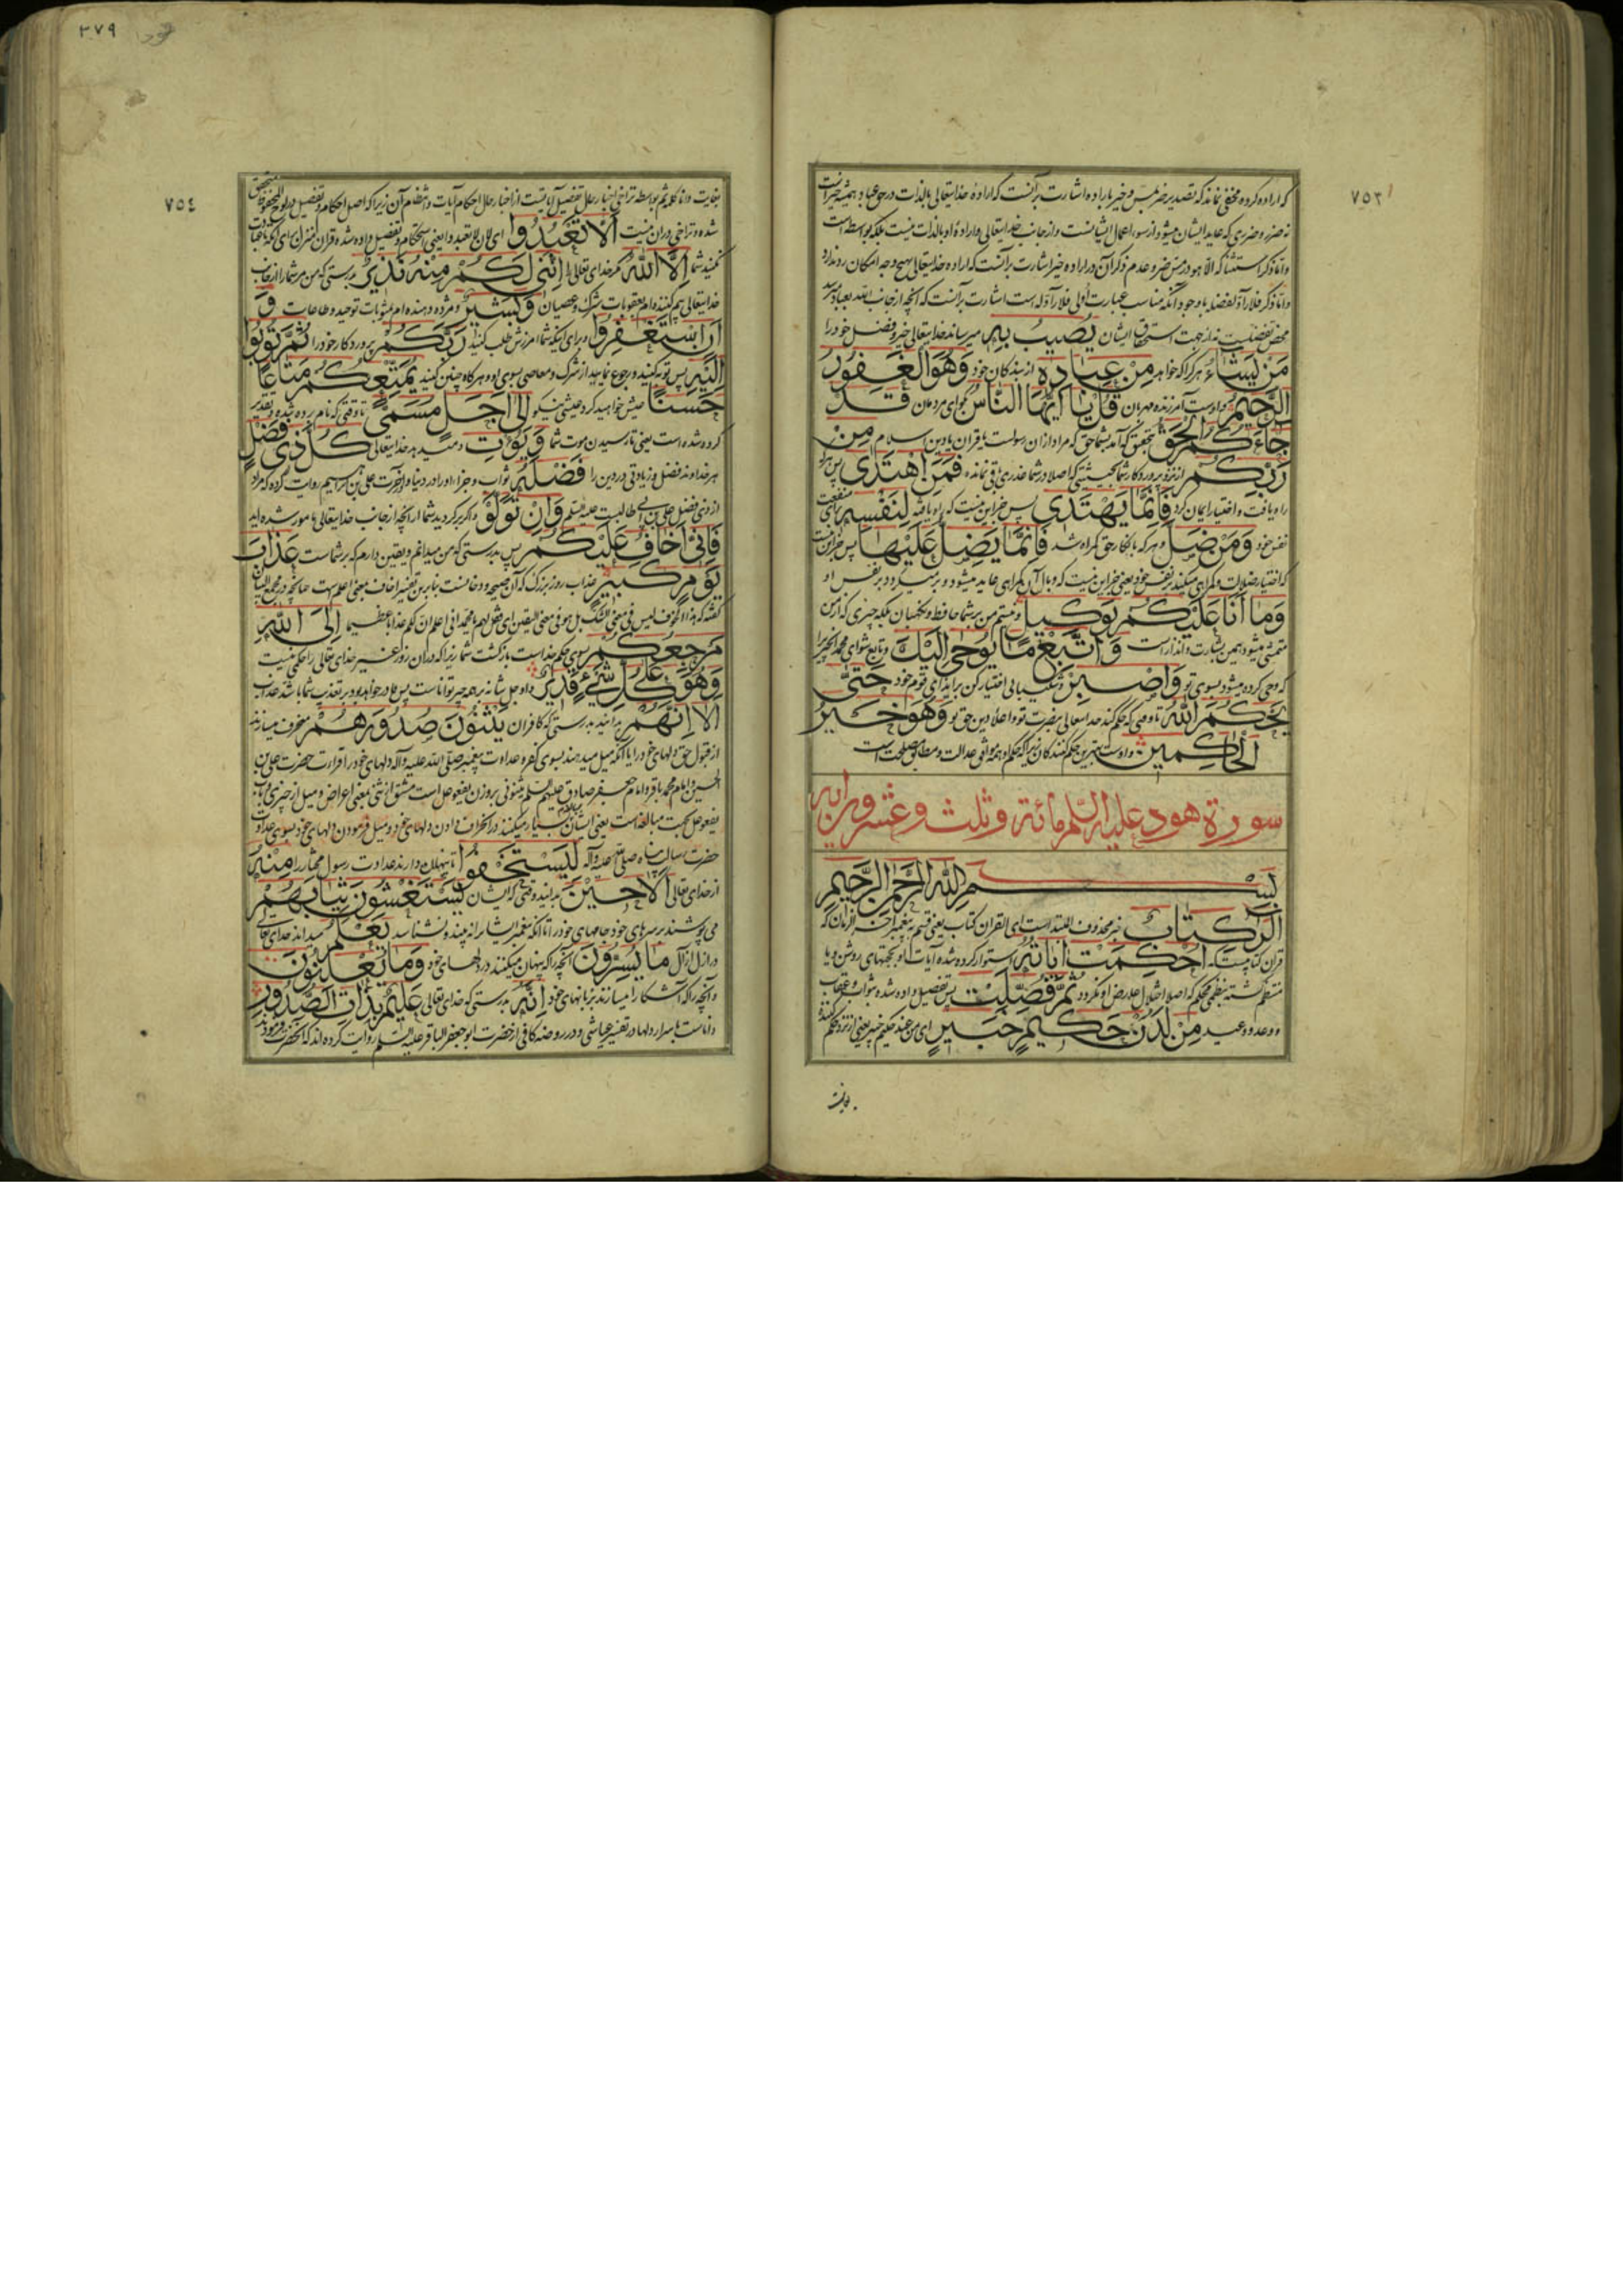 ٧٥٣
که اراده کرده مخفی نماند که تصدیر ضر بمس و خیر باراده اشارت بر آنست که اراده خدایتعالی بالذات در حق عباد همیشه خیر است
نه ضرر و ضرری که عاید ایشان میشود از سوء اعمال ایشانست و از جانب خدایتعالی و اراده او بالذات نیست بلکه بواسطه است
و اما ذکر استثنا که الا هو در مس ضر و عدم ذکر آن در اراده خیر اشارت برانست که اراده خدایتعالی بهیچ وجه امکان رد ندارد
و اما ذکر فلا رآد لفضله با وجود آنکه مناسب عبارت اولی فلا رآد له است اشارت برآنست که آنچه از جانب الله بعباد میرسد
محض تفضلیست نه از جهت استحقاق ایشان یُصیبُ بِهِ میرساند خدایتعالی خیر و فضل خود را
مَنْ یَشاءُ هر کرا که خواهد مِنْ عِبادِهِ از بندگان خود وَهُوَ الْغَفُورُ
الرَّحیمُ و اوست آمرزنده مهربان قُلْ یا اَیُّهَا النّاسُ بگو ای مردمان قَدْ
جاءَکُمُ الْحَقُّ بتحقیق که آمد بشما حق که مراد از ان رسولست یا قران یا دین اسلام مِنْ
رَبِّکُمْ از نزد پروردگار شما بحیثیتی که اصلا در شما عذری باقی نمانده فَمَنِ اهْتَدی پس هر که
راه یافت و اختیار ایمان کرد فَاِنَّما یَهْتَدی پس جز این نیست که راه یافته لِنَفْسِهِ برای منفعت
نفس خود وَمَنْ ضَلَّ و هر که بانکار حق گمراه شد فَاِنَّما یَضِلُّ عَلَیْها پس جز این نیست
که اختیار ضلالت و گمراهی میکند بر نفس خود یعنی جز این نیست که وبال آن گمراهی عاید میشود و برمیگردد بر نفس او
وَما اَنَا عَلَیْکُمْ بِوَکیلٍ و نیستم من بر شما حافظ و نگهبان بلکه چیزی که از من
متمشی میشود همین بشارت و انذار است وَاتَّبِعْ ما یُوحی اِلَیْکَ و تابع شو ای محمد آنچیز را
که وحی کرده میشود بسوی تو وَاصْبِرْ و شکیبائی اختیار کن بر ایذای قوم خود حَتّی
یَحْکُمَ اللهُ تا وقتی که حکم کند خدایتعالی بنصرت تو و اعلاء دین حق تو وَهُوَ خَیْرُ
الْحاکِمینَ و اوست بهترین حکم کنندگان زیرا که حکم او همه موافق عدالت و مطابق مصلحت است
سورة هود علیه السلم مائة وثلث وعشرون آیه
بِسْمِ اللهِ الرَّحْمنِ الرَّحیمِ
الر کِتابٌ خبر محذوف المبتداست ای القران کتاب یعنی قسم به پیغمبر آخر الزمان که
قران کتابیست که اُحْکِمَتْ ایاتُهُ استوار کرده شده آیات او بحجتهای روشن و یا
منتظم گشته بنظمی محکم که اصلا اختلال بدان عارض او نگردد ثُمَّ فُصِّلَتْ پس تفصیل داده شده بثواب و عقاب
و وعد و وعید مِنْ لَدُنْ حَکیمٍ خَبیرٍ ای من عند حکیم خبیر یعنی از نزد حکم کننده
بغایت
٣٧٩
هود
٧٥٤
بغایت دانا کلمه ثم بواسطه تراخی اخبار حال تفصیل آیاتست از اخبار حال احکام آیات و نظم آن زیرا که اصل احکام و تفصیل در لوح محفوظ متحقق
شده و تراخی در ان نیست اَلّا تَعْبُدُوا ای لان لا تعبدوا یعنی استحکام و تفصیل داده شده قران منزل برای آنکه عبادت
نکنید شما اِلَّا اللهَ مگر خدای تعالی را اِنَّنی لَکُمْ مِنْهُ نَذیرٌ بدرستی که من مر شما را از جانب
خدایتعالی بیم کننده ام بعقوبات شرک و عصیان وَبَشیرٌ و مژده دهنده ام بمثوبات توحید و طاعات وَ
اَنِ اسْتَغْفِرُوا و برای اینکه شما آمرزش طلب کنید رَبَّکُمْ پروردگار خود را ثُمَّ تُوبُوا
اِلَیْهِ پس توبه کنید و رجوع نمائید از شرک و معاصی بسوی او و هرگاه چنین کنید یُمَتِّعْکُمْ مَتاعًا
حَسَنًا عیش خواهید کرد عیشی نیکو اِلی اَجَلٍ مُسَمًّی تا وقتی که نام برده شده و تقدیر
کرده شده است یعنی تا رسیدن موت شما وَیُؤْتِ و میدهد خدایتعالی کُلَّ ذی فَضْلٍ
هر خداوند فضل و زیادتی در دین را فَضْلَهُ ثواب و جزاء او را در دنیا و آخرت علی بن ابراهیم روایت کرده که مراد
از ذی فضل علی بن ابی طالبست علیه السلم وَاِنْ تَوَلَّوْا و اگر برگردید شما از آنچه از جانب خدایتعالی مامور شده اید
فَاِنّی اَخافُ عَلَیْکُمْ پس بدرستی که من میدانم و یقین دارم که بر شماست عَذابَ
یَوْمٍ کَبیرٍ عذاب روز بزرگ که آن صیحه و دخانست بنابر این تفسیر اخاف بمعنی اعلم است چنانچه در مجمع البیان
گفته که هذا الخوف لیس فی معنی الشک بل هو فی معنی الیقین ای فقل لهم یا محمد انی اعلم ان لکم عذابا عظیما اِلَی اللهِ
مَرْجِعُکُمْ بسوی حکم خداست بازگشت شما زیرا که در ان روز غیر خدای تعالی را حکمی نیست
وَهُوَ عَلی کُلِّ شَیْءٍ قَدیرٌ و او جل شانه بر همه چیز تواناست پس قادر خواهد بود بر تعذیب شما باشد عذاب
اَلا اِنَّهُمْ بدانید بدرستی که کافران یَثْنُونَ صُدُورَهُمْ منحرف میسازند
از قبول حق دلهای خود را یا آنکه میل میدهند بسوی کفر و عداوت پیغمبر صلی الله علیه وآله دلهای خود را قرائت حضرت علی بن
الحسین و امام محمد باقر و امام جعفر صادق علیهم السلم یثنونی بروزن یفعوعل است مشتق از ثنی بمعنی اعراض و میل از چیزی و باب
یفعوعل بجهت مبالغه است یعنی ایشان مبالغه بسیار میکنند در انحراف دادن دلهای خود و میل فرمودن دلهای خود بسوی عداوت
حضرت رسالت پناه صلی الله علیه وآله لِیَسْتَخْفُوا تا پنهان دارند عداوت رسول مختار را مِنْهُ
از خدای تعالی اَلا حینَ بدانید وقتی که ایشان یَسْتَغْشُونَ ثِیابَهُمْ
می پوشند بر سرهای خود جامهای خود را تا آنکه پیغمبر ایشان را نه بیند و نشناسد یَعْلَمُ میداند خدای تعالی
در ازل آزال ما یُسِرُّونَ آنچه را که پنهان میکنند در دلهای خود وَما یُعْلِنُونَ
و آنچه را که آشکارا میسازند بزبانهای خود اِنَّهُ بدرستی که خدای تعالی عَلیمٌ بِذاتِ الصُّدُورِ
داناست باسرار دلها در تفسیر عیاشی و در روضه کافی از حضرت ابو جعفر الباقر علیه السلم روایت کرده اند که آنحضرت فرمودند